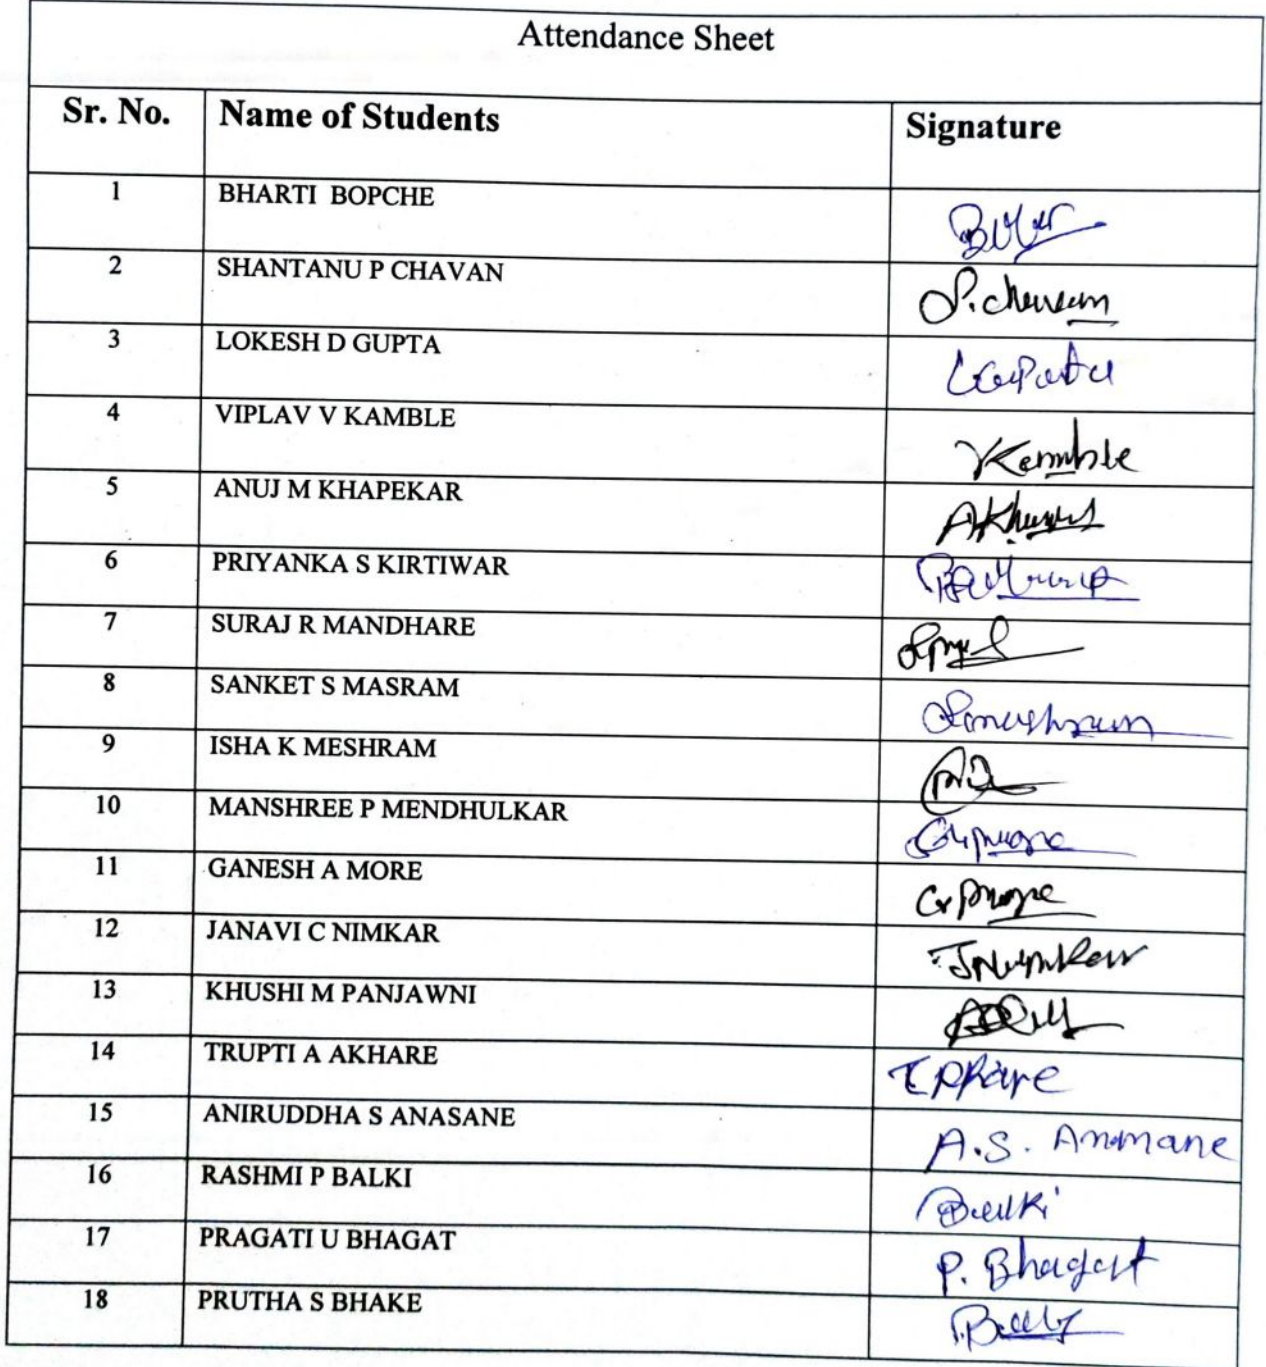 Attendance Sheet
Sr. No. Name of Students Signature
1 BHARTI BOPCHE
2 SHANTANU P CHAVAN
3 LOKESH D GUPTA
4 VIPLAV V KAMBLE VKamble
5 ANUJ M KHAPEKAR
6 PRIYANKA S KIRTIWAR
7 SURAJ R MANDHARE
8 SANKET S MASRAM
9 ISHA K MESHRAM
10 MANSHREE P MENDHULKAR
11 GANESH A MORE
12 JANAVI C NIMKAR
13 KHUSHI M PANJAWNI
14 TRUPTI A AKHARE
15 ANIRUDDHA S ANASANE A.S.
16 RASHMI P BALKI Balki
17 PRAGATI U BHAGAT P. Bhagat
18 PRUTHA S BHAKE